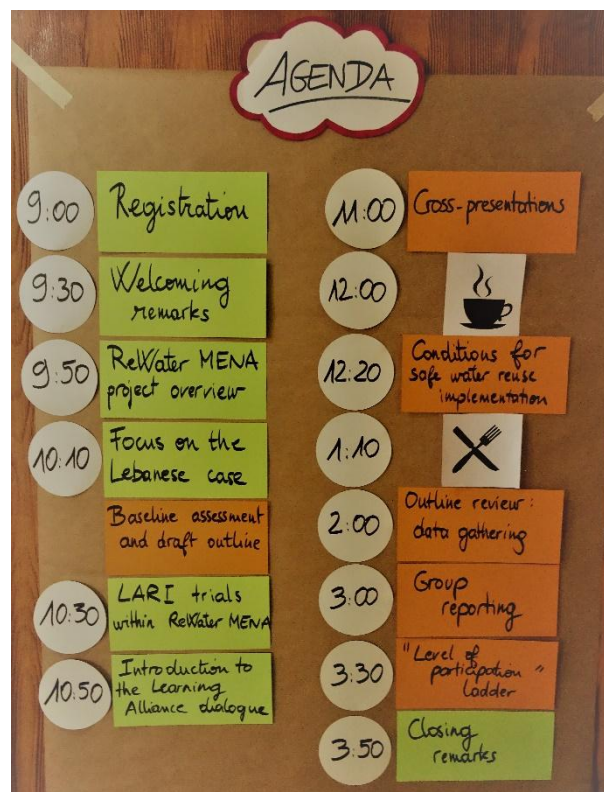 AGENDA
9:00
Registration
9:30
Welcoming
remarks
9:50
ReWater MENA
project overview
10:10
Focus on the
Lebanese case
Baseline assessment
and draft outline
10:30
LARI trials
within ReWater MENA
10:50
Introduction to
the Learning
Alliance dialogue
11:00
Cross-presentations
12:00
12:20
Conditions for
safe water reuse
implementation
1:10
2:00
Outline review:
data gathering
3:00
Group
reporting
3:30
"Level of
participation"
ladder
3:50
Closing
remarks